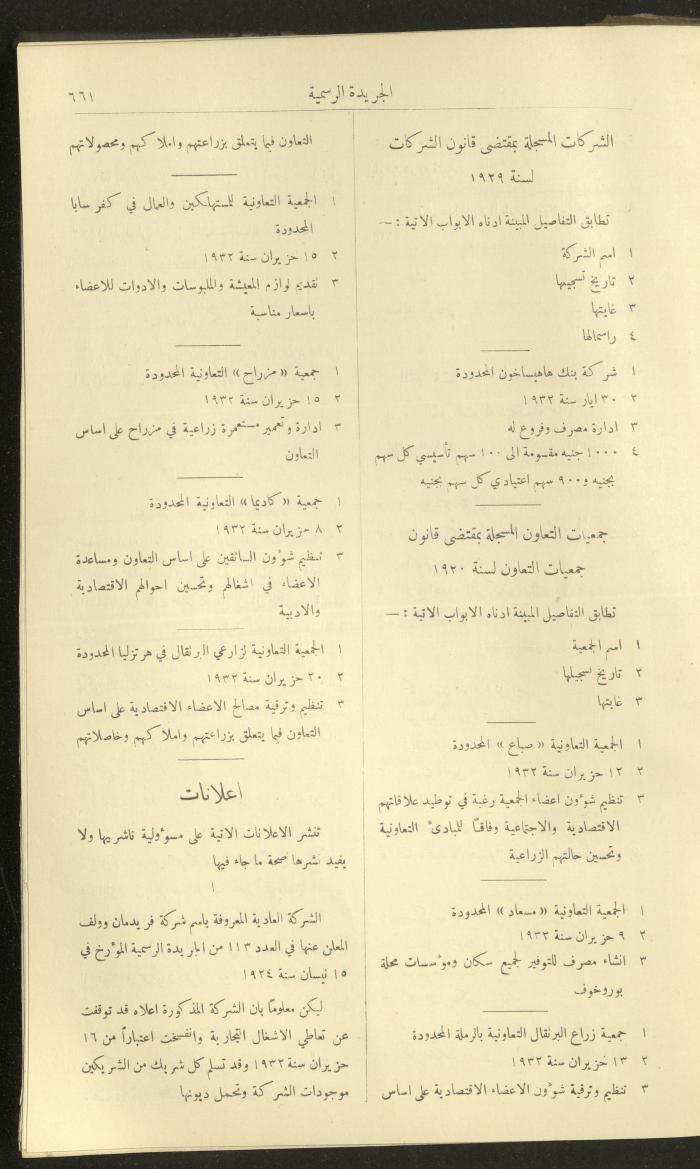 الجريدة الرسمية
٦٦١
الشركات المسجلة بمقتضى قانون الشركات
لسنة ١٩٢٩
تطابق التفاصيل المبينة ادناه الابواب الاتية : —
١ اسم الشركة
٢ تاريخ تسجيلها
٣ غايتها
٤ راسمالها
١ شركة بنك هاهيساخون المحدودة
٢ ٣٠ ايار سنة ١٩٣٢
٣ ادارة مصرف وفروع له
٤ ١٠٠٠ جنيه مقسومة الى ١٠٠ سهم تأسيسي كل سهم
بجنيه و٩٠٠ سهم اعتيادي كل سهم بجنيه
جمعيات التعاون المسجلة بمقتضى قانون
جمعيات التعاون لسنة ١٩٢٠
تطابق التفاصيل المبينة ادناه الابواب الاتية : —
١ اسم الجمعية
٢ تاريخ تسجيلها
٣ غايتها
١ الجمعية التعاونية « صباع » المحدودة
٢ ١٢ حزيران سنة ١٩٣٢
٣ تنظيم شوٴون اعضاء الجمعية رغبة في توطيد علاقاتهم
الاقتصادية والاجتماعية وفاقاً للمبادىٴ التعاونية
وتحسين حالتهم الزراعية
١ الجمعية التعاونية « مسعاد » المحدودة
٢ ٩ حزيران سنة ١٩٣٢
٣ انشاء مصرف للتوفير لجميع سكان وموٴسسات محلة
بوروخوف
١ جمعية زراع البرتقال التعاونية بالرملة المحدودة
٢ ١٣ حزيران سنة ١٩٣٢
٣ تنظيم وترقية شوٴون الاعضاء الاقتصادية على اساس
التعاون فيما يتعلق بزراعتهم واملاكهم ومحصولاتهم
١ الجمعية التعاونية للمستهلكين والعمال في كفر سابا
المحدودة
٢ ١٥ حزيران سنة ١٩٣٢
٣ تقديم لوازم المعيشة والملبوسات والادوات للاعضاء
باسعار مناسبة
١ جمعية « مزراح » التعاونية المحدودة
٢ ١٥ حزيران سنة ١٩٣٢
٣ ادارة وتعمير مستعمرة زراعية في مزراح على اساس
التعاون
١ جمعية « كاديما » التعاونية المحدودة
٢ ٨ حزيران سنة ١٩٣٢
٣ تنظيم شوٴون السائقين على اساس التعاون ومساعدة
الاعضاء في اشغالهم وتحسين احوالهم الاقتصادية
والادبية
١ الجمعية التعاونية لزارعي البرتقال في هرتزليا المحدودة
٢ ٢٠ حزيران سنة ١٩٣٢
٣ تنظيم وترقية مصالح الاعضاء الاقتصادية على اساس
التعاون فيما يتعلق بزراعتهم واملاكهم وحاصلاتهم
اعلانات
تنشر الاعلانات الاتية على مسوٴولية ناشريها ولا
يفيد نشرها صحة ما جاء فيها
١
الشركة العادية المعروفة باسم شركة فريدمان وولف
المعلن عنها في العدد ١١٣ من الجريدة الرسمية الموٴرخ في
١٥ نيسان سنة ١٩٢٤
ليكن معلوماً بان الشركة المذكورة اعلاه قد توقفت
عن تعاطي الاشغال التجارية وانفسخت اعتباراً من ١٦
حزيران سنة ١٩٣٢ وقد تسلم كل شريك من الشريكين
موجودات الشركة وتحمل ديونها